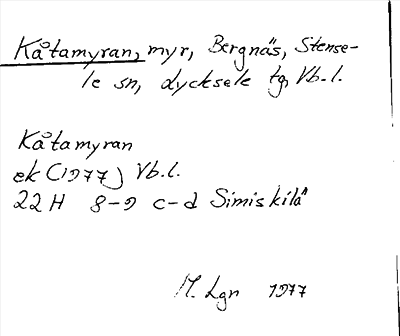 Kåtamyran, myr, Bergnäs, Stense-
le sn, Lycksele tg, Vb.l.
Kåtamyran
ek (1977) Vb.l.
22 H 8-9 c-d Simiskilä
M. Lgr 1977